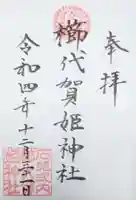 奉拝
櫛代賀姫神社
令和四年十二月三十一日